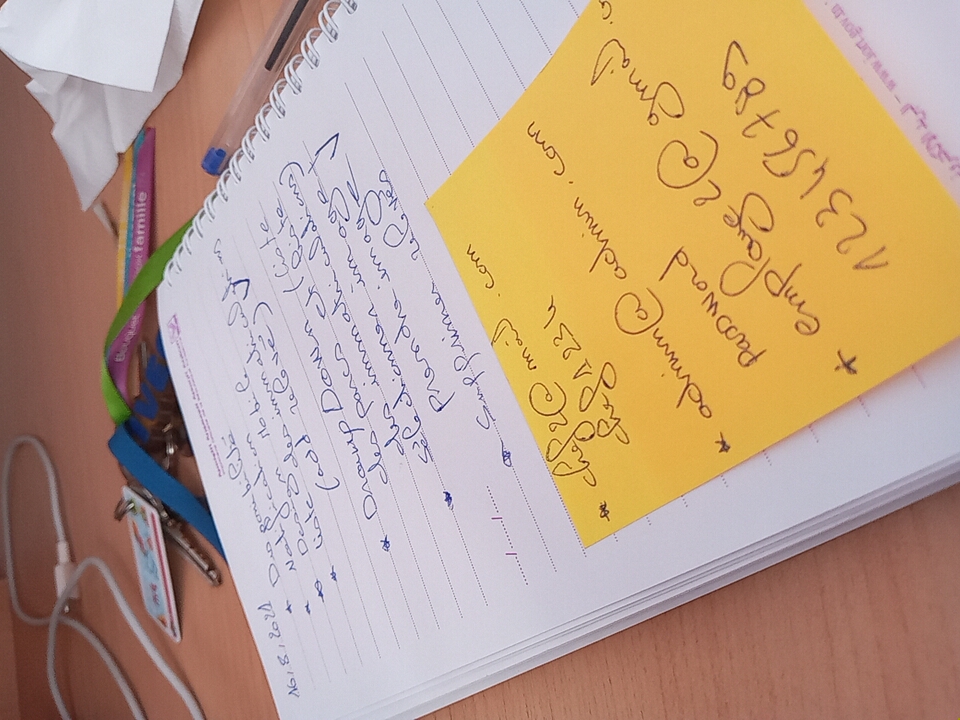 Bouquet
famille
16,8,2021
* Disponibilité
* Notification
* Design Mobile
* liste des immatriculations
(add relevé) ✓
* DroupDown (liste
des parcs et liste
des immatriculations)
* Sélectionner image +
prendre image ✓
* Supprimer relevés
...../...../.....
* chef2@mail.com
chef1234
* admin@admin.com
password
* employe2@gmail.c
123456789
www.iort.gov.tn